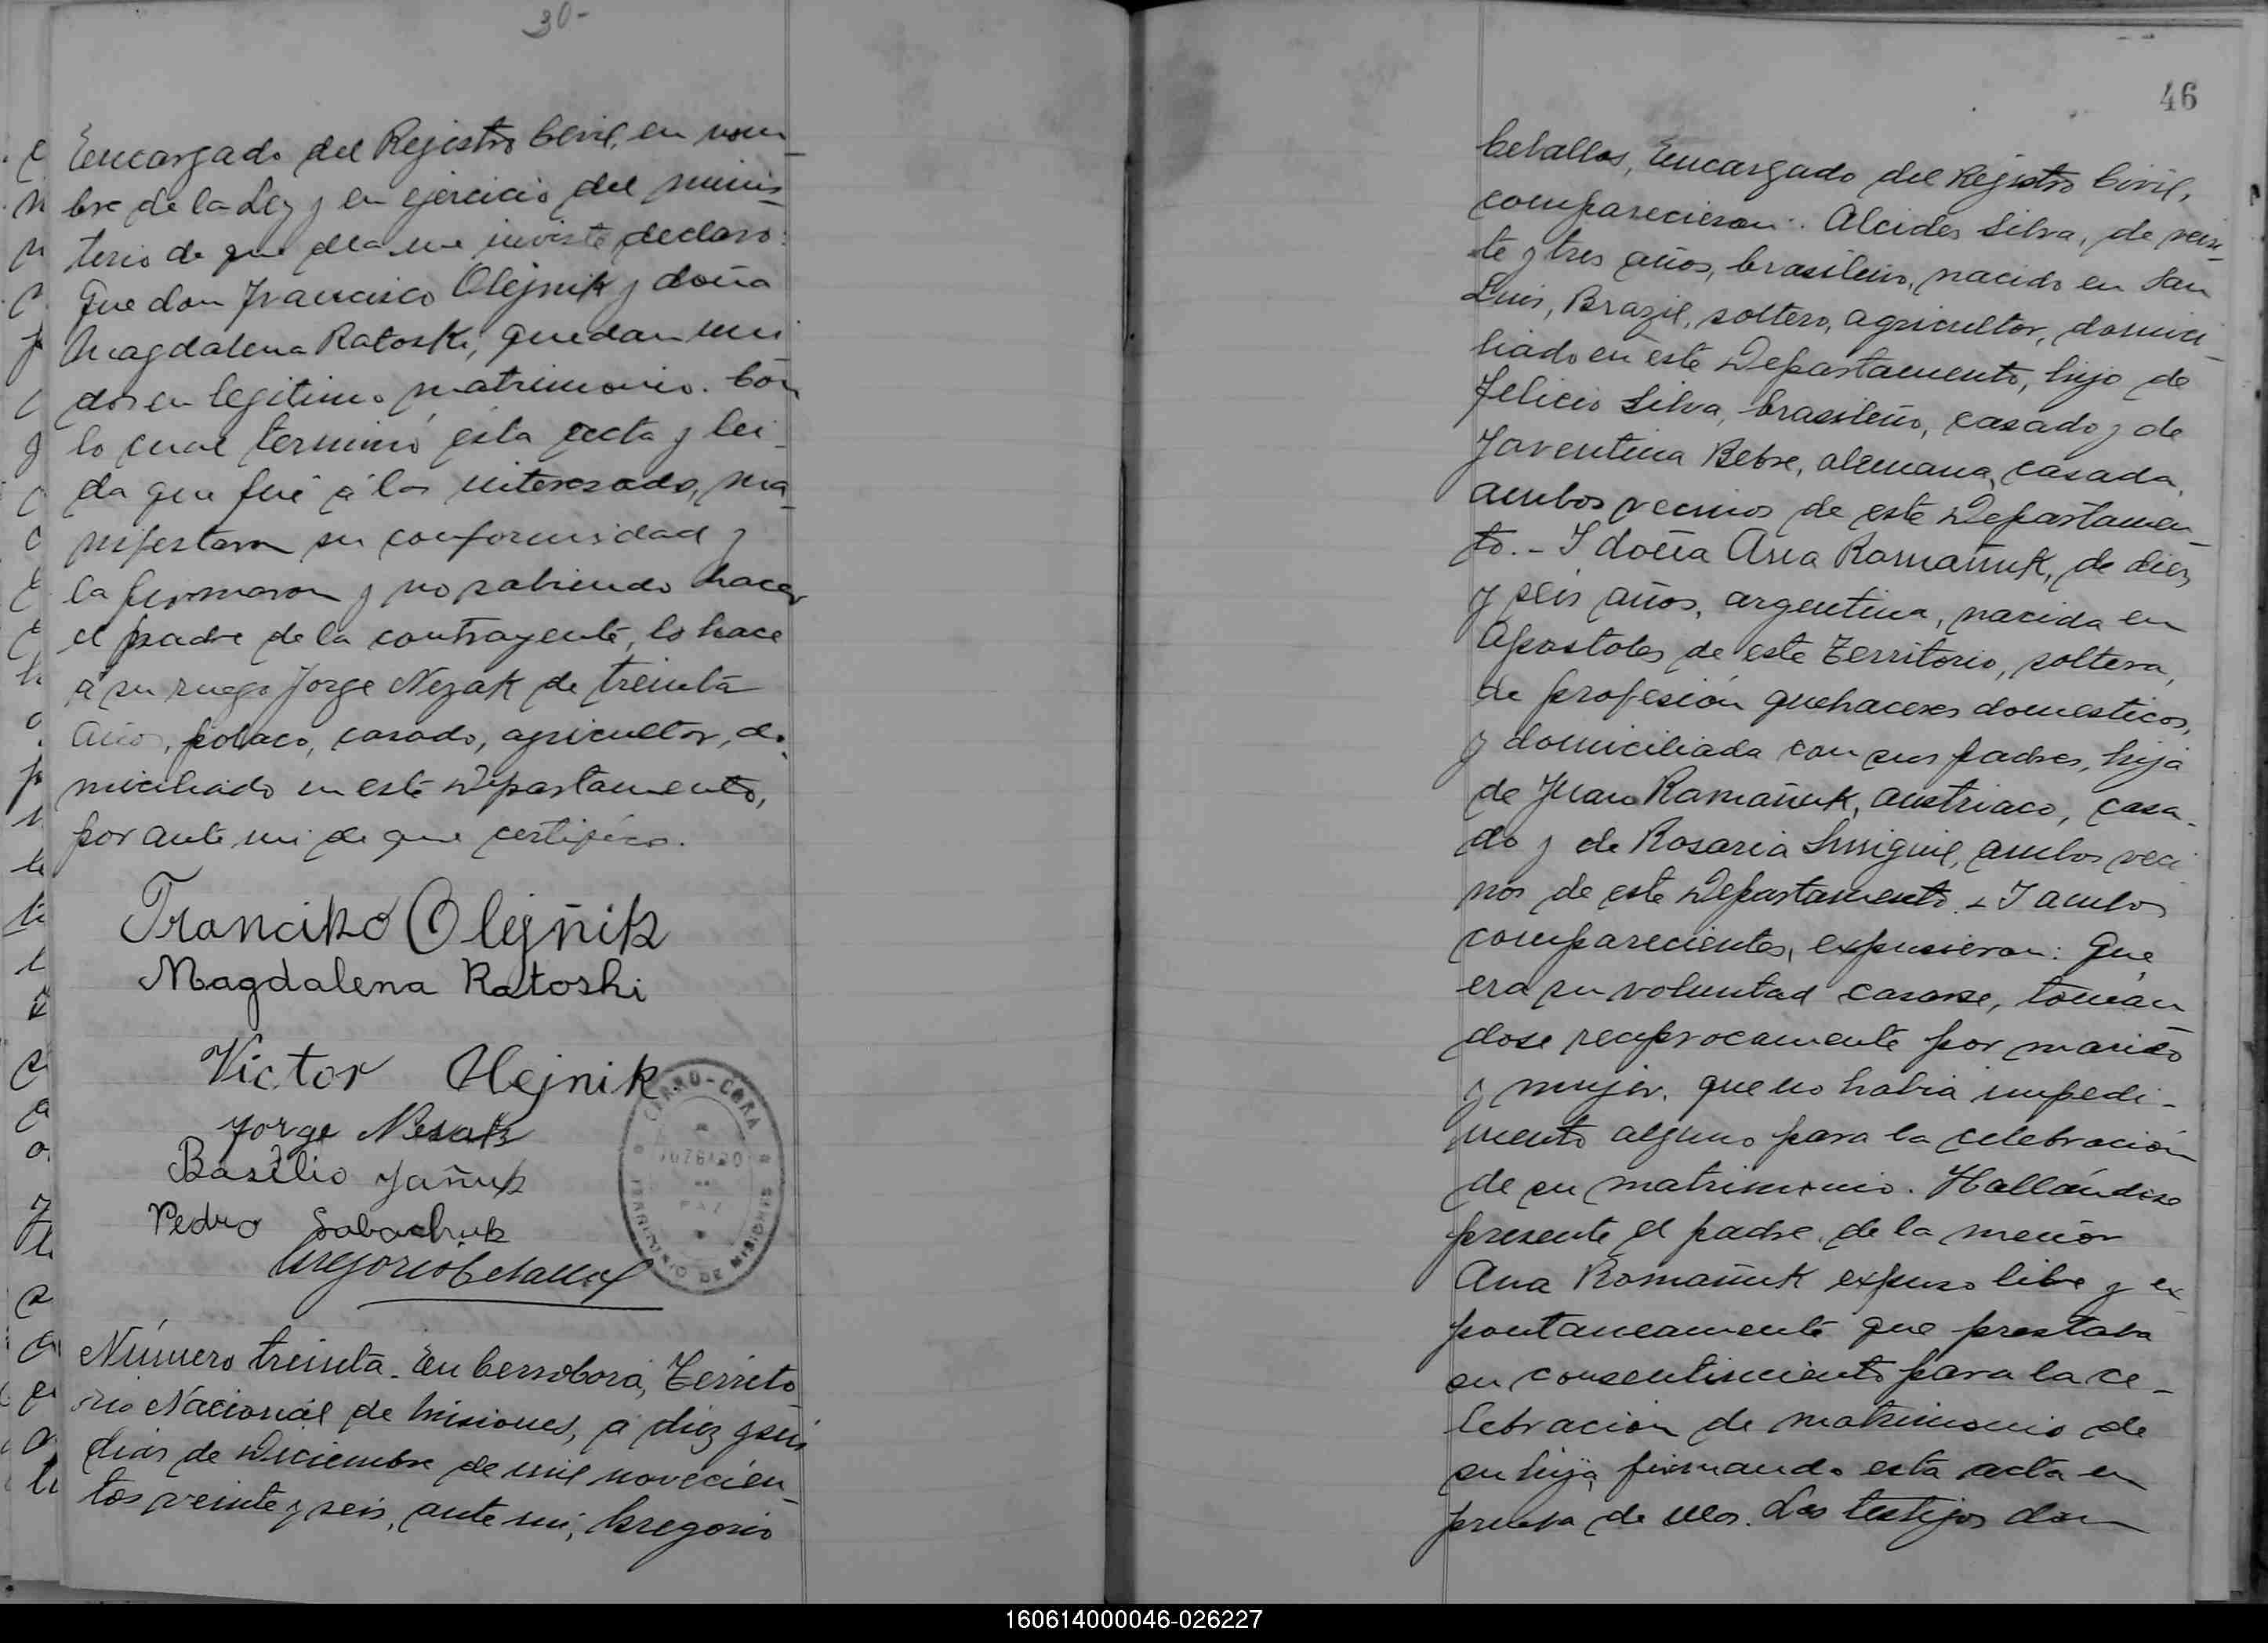 30-
Encargado del Rejistro Civil, en nom
bre de la Ley y en ejercicio del minis-
terio de que ella me inviste declaro:
Que don Francisco Olejnik y doña
Magdalena Ratoski, quedan uni
dos en legitimo matrimonio. Con
lo cual terminó esta acta y lei-
da que fué á los interesados, ma-
nifestaron su conformidad y
la firmaron y no sabiendo hacer
el padre de la contrayente, lo hace
á su ruego Jorge Nezak de treinta
años, polaco, casado, agricultor, do
miciliado en este Departamento,
por ante mi de que certifico.
Francisko Olejñik
Magdalena Ratoski
Victor Olejnik
Jorge Nesak
Basilio Jañuk
Pedro Sabachuk
Gregorio Cevallos
CERRO-CORA
JUZGADO
PAZ
TERRITORIO DE MISIONES
Número treinta. En Cerro Corá, Territo
rio Nacional de Misiones, á diez y seis
dias de Diciembre de mil novecien-
tos veinte y seis, ante mi, Gregorio
46
Cevallos, Encargado del Rejistro Civil,
comparecieron: Alcides Silva, de vein-
te y tres años, brasileño, nacido en San
Luis, Brazil, soltero, agricultor, domici-
liado en este Departamento, hijo de
Felicio Silva, brasileño, casado y de
Joventina Bebre, alemana, casada,
ambos vecinos de este Departamen-
to. - I doña Ana Romañuk, de diez
y seis años, argentina, nacida en
Apostoles de este Territorio, soltera,
de profesión quehaceres domesticos,
y domiciliada con sus padres, hija
de Juan Romañuk, austriaco, casa-
do y de Rosaria Smiguil, ambos veci
nos de este Departamento. - I ambos
comparecientes, expusieron: Que
era su voluntad casarse, tomán
dose reciprocamente por marido
y mujer. que no habia impedi-
mento alguno para la celebración
de su matrimonio. Hallándose
presente el padre de la menor
Ana Romañuk expuso libre y es-
pontaneamente que prestaba
su consentimiento para la ce-
lebración de matrimonio de
su hija, firmando esta acta en
prueba de ello. Los testigos don